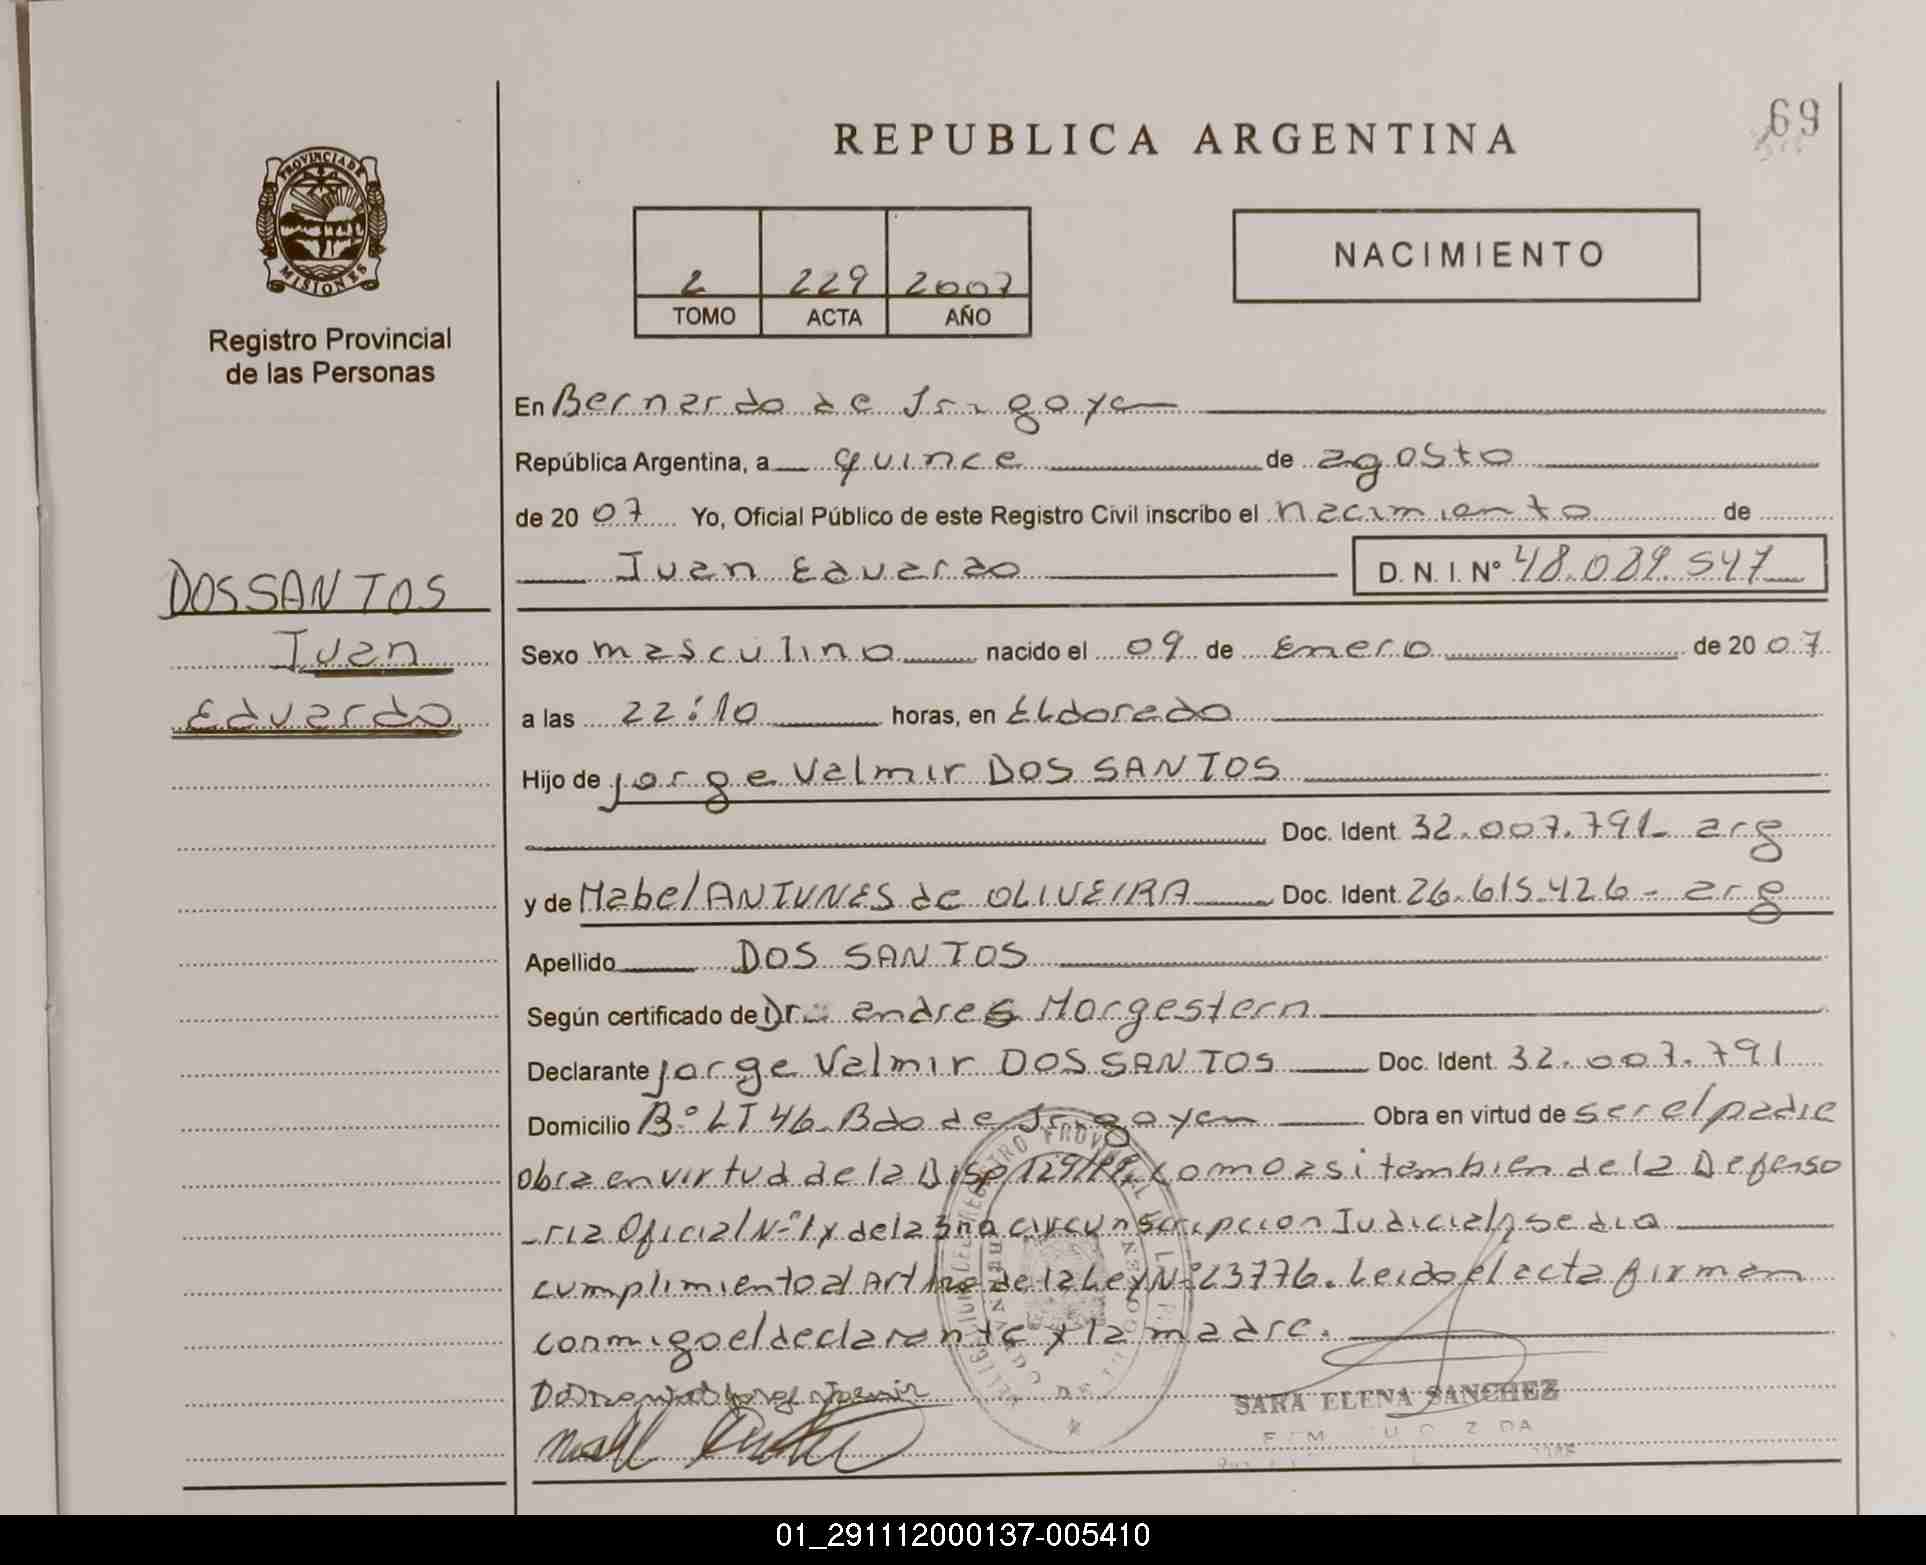 69
REPUBLICA ARGENTINA
PROVINCIA DE
MISIONES
Registro Provincial
de las Personas
2 229 2007
TOMO ACTA AÑO
NACIMIENTO
En Bernardo de Irigoyen
República Argentina, a quince de agosto
de 20 07 Yo, Oficial Público de este Registro Civil inscribo el nacimiento de
Juan Eduardo D. N. I. N° 48.089.547
DOS SANTOS
Juan
Eduardo
Sexo masculino nacido el 09 de Enero de 20 07
a las 22:10 horas, en ELdorado
Hijo de jorge Valmir DOS SANTOS
Doc. Ident. 32.007.791- arg
y de Mabel ANTUNES de OLIVEIRA Doc. Ident. 26.615.426- arg
Apellido DOS SANTOS
Según certificado de Dr. andres Morgestern
Declarante jorge Valmir DOS SANTOS Doc. Ident. 32.007.791
Domicilio B° LT 46. Bdo de Irigoyen Obra en virtud de ser el padre
Obra en virtud de la Disp como asi tambien de la Defenso
-ria Oficial N° 1 y de la 3ra circunscripcion Judicial, se dio
cumplimiento al Art de la Ley N° 23776. Leido el acta firman
conmigo el declarante y la madre.
SARA ELENA SANCHEZ
01_291112000137-005410